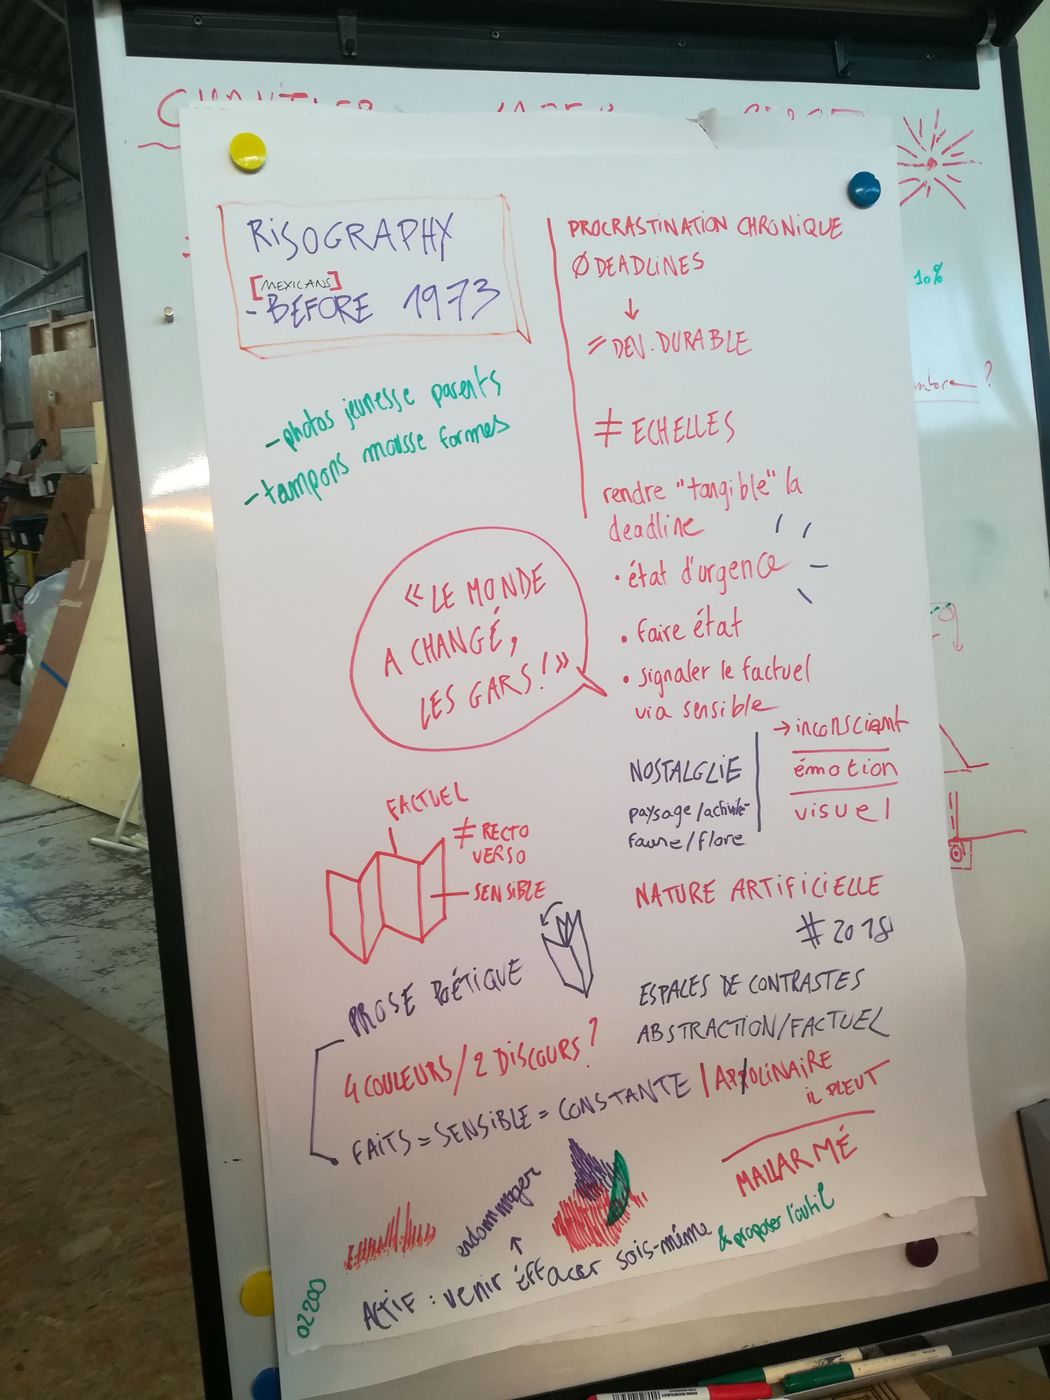 RISOGRAPHY
[MEXICANS]
- BEFORE 1973
- photos jeunesse parents
- tampons mousse formes
PROCRASTINATION CHRONIQUE
Ø DEADLINES
↓
= DEV. DURABLE
≠ ECHELLES
rendre "tangible" la
deadline
• état d'urgence
• faire état
• signaler le factuel
via sensible
« LE MONDE
A CHANGÉ,
LES GARS ! »
NOSTALGLIE
paysage/activité
faune/flore
→ inconscient
émotion
visuel
FACTUEL
≠ RECTO
VERSO
SENSIBLE
NATURE ARTIFICIELLE
#2018
PROSE POÉTIQUE
ESPACES DE CONTRASTES
ABSTRACTION/FACTUEL
4 COULEURS / 2 DISCOURS ?
FAITS = SENSIBLE = CONSTANTE / APPOLINAIRE
IL PLEUT
MALLARMÉ
endommager
↑
ACTIF : venir effacer sois-même & proposer l'outil
02200
10%
?